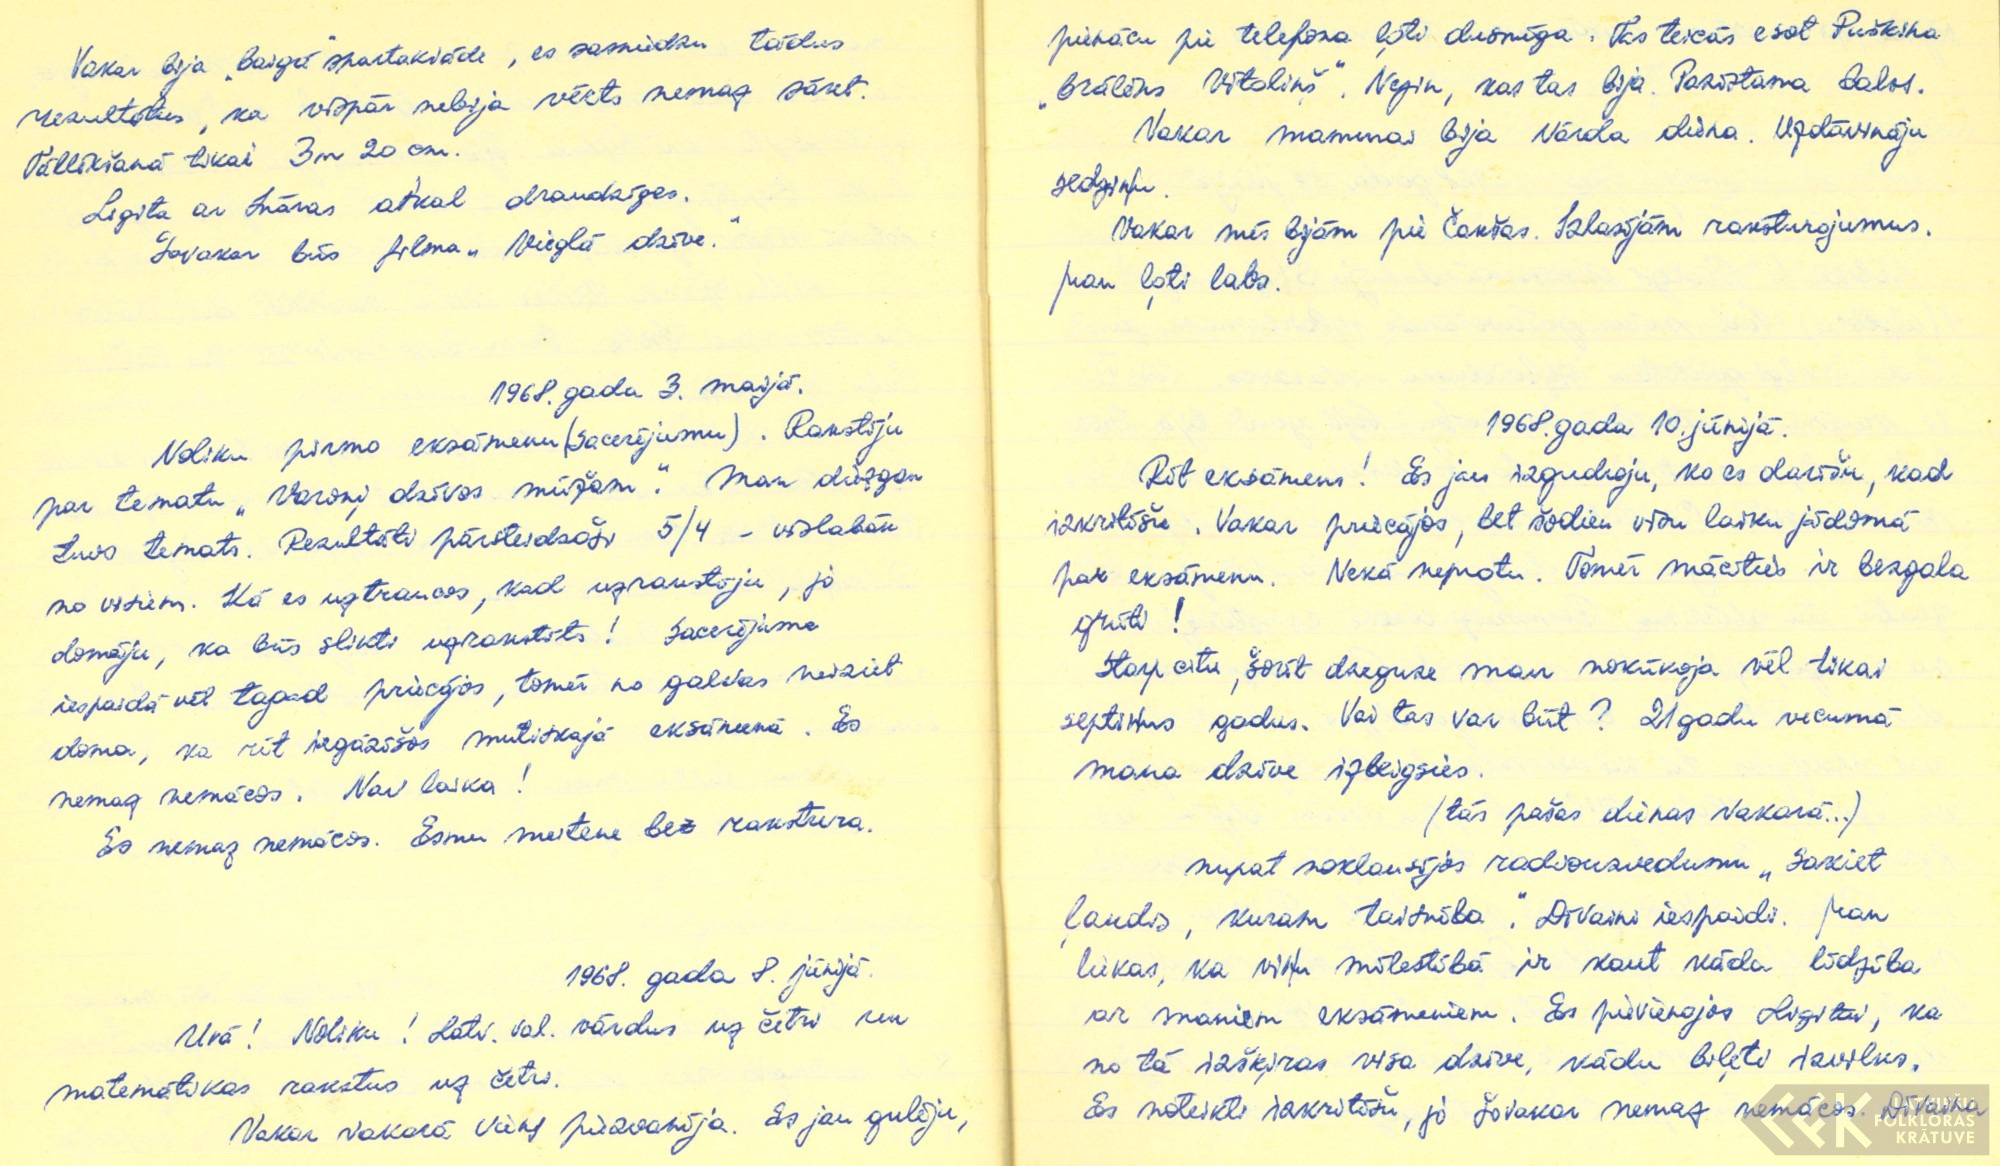 Vakar bija „baigā" spartakiāde, es sasniedzu tādus
rezultātus, ka vispār nebija vērts nemaz sākt.
Tāllēkšanā tikai 3m 20 cm.
Ligita ar Ināras atkal draudzīgas.
Šovakar būs filma „Vieglā dzīve."
1968. gada 3. maijā.
Noliku pirmo eksāmenu (sacerējumu). Rakstīju
par tematu „Varoņi dzīvos mūžam". Man diezgan
tuvs temats. Rezultāti pārsteidzoši 5/4 – vislabāk
no visiem. Kā es uztraucos, kad uzrakstīju, jo
domāju, ka būs slikti uzrakstīts! Sacerējuma
iespaidā vēl tagad priecājos, tomēr no galvas neiziet
doma, ka rīt izgāzīšos mutiskajā eksāmenā. Es
nemaz nemācos. Nav laika!
Es nemaz nemācos. Esmu meitene bez rakstura.
1968. gada 8. jūnijā.
Urā! Noliku! Latv. val. vārdus uz četri un
matemātikas rakstus uz četri.
Vakar vakarā viens piezvanīja. Es jau gulēju,
pienācu pie telefona ļoti dusmīga. Tas teicās esot Puškina
„brālēns Vitoliņš". Nezin, kas tas bija. Pazīstama balss.
Vakar mammai bija vārda diena. Uzdāvināju
sedziņu.
Vakar mēs bijām pie Čakšas. Izlasījām raksturojumus.
Man ļoti labs.
1968. gada 10. jūnijā.
Rīt eksāmens! Es jau izgudroju, ko es darīšu, kad
izkritīšu. Vakar priecājos, bet šodien visu laiku jādomā
par eksāmenu. Nekā neprotu. Tomēr mācīties ir bezgala
grūti!
Starp citu, šorīt dzeguze man nokūkoja vēl tikai
septiņus gadus. Vai tas var būt? 21 gadu vecumā
mana dzīve izbeigsies.
(tās pašas dienas vakarā...)
nupat noklausījos radiouzvedumu „Sakiet
ļaudis, kuram taisnība". Dīvaini iespaidi. Man
liekas, ka viņu mīlestībā ir kaut kāda līdzība
ar maniem eksāmeniem. Es pievienojos Ligitai, ka
no tā izšķiras visa dzīve, kādu biļeti izvilks.
Es noteikti izkritīšu, jo šovakar nemaz nemācos. Dīvaina
LATVIEŠU
FOLKLORAS
KRĀTUVE